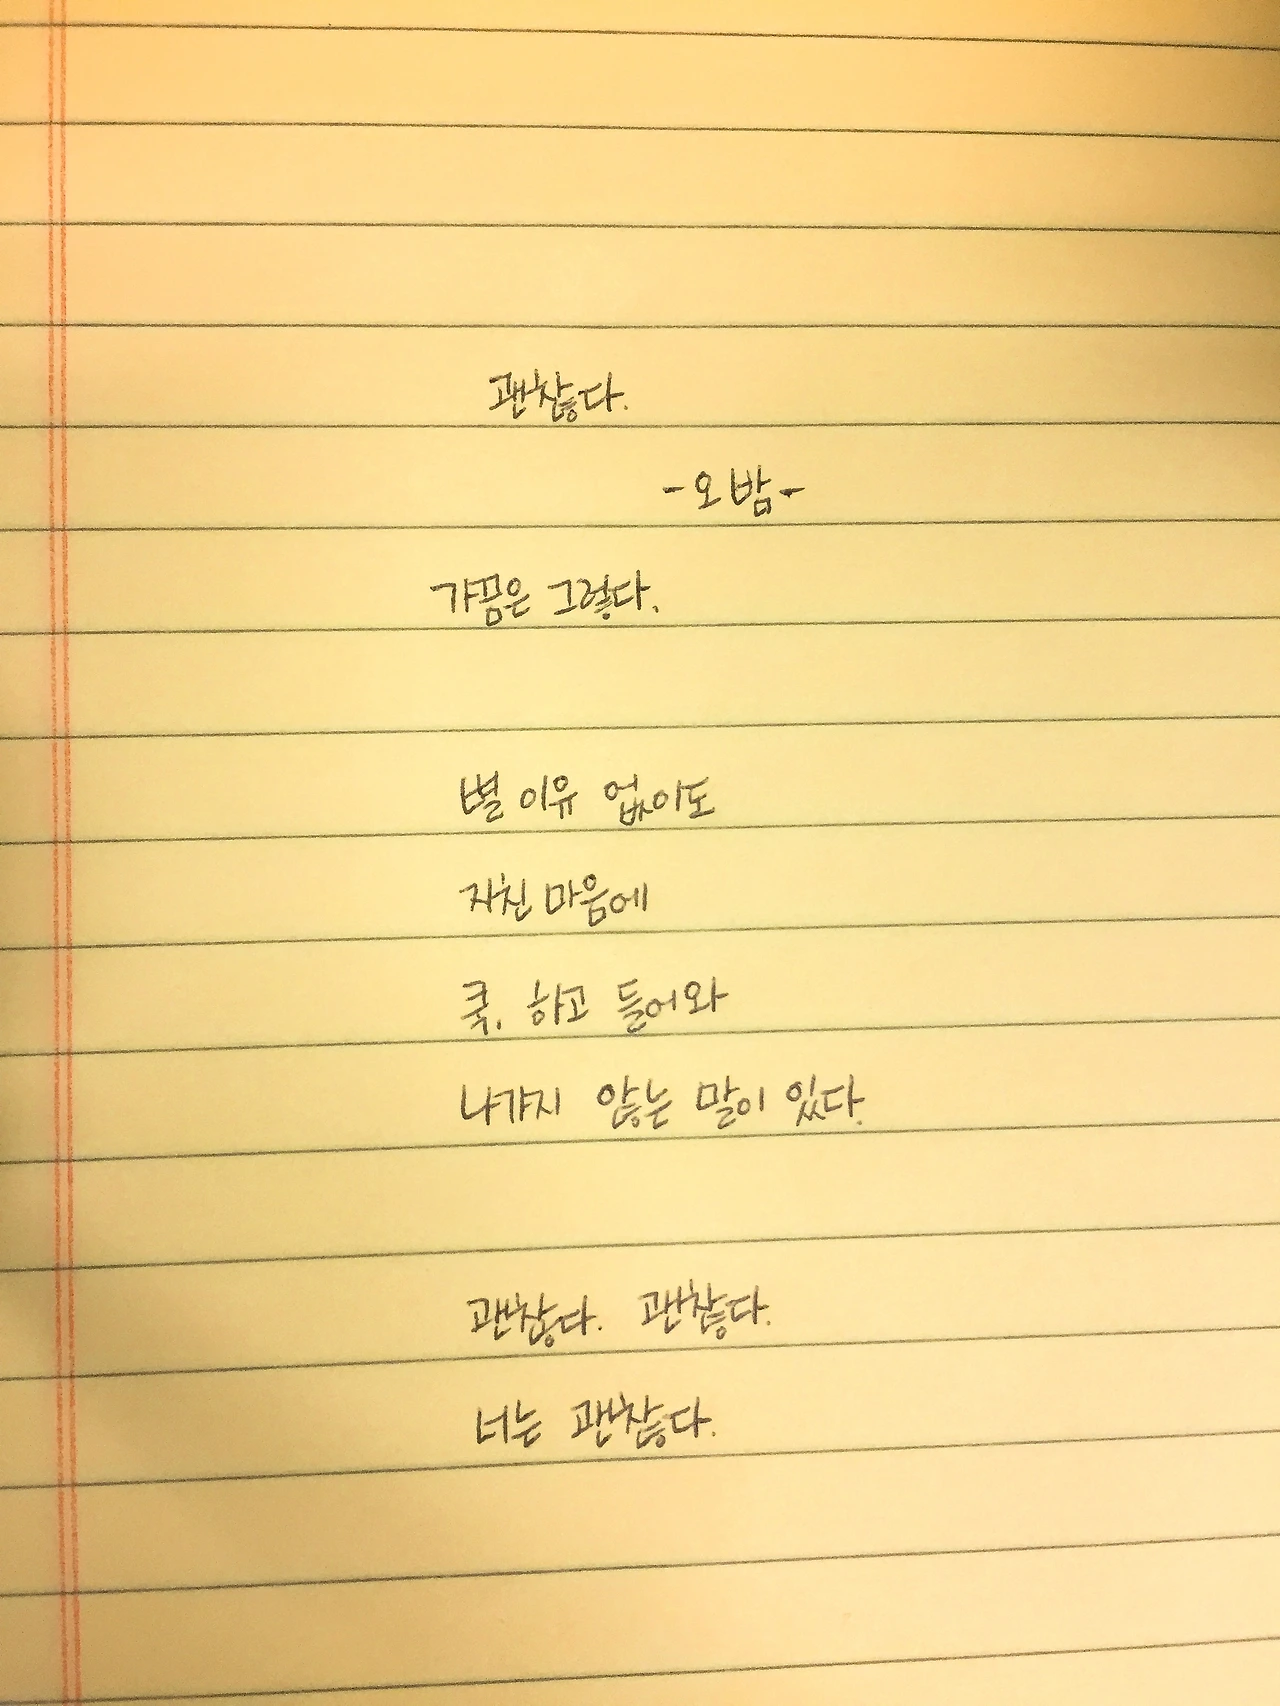 괜찮다.
-오밤-
가끔은 그렇다.
별 이유 없이도
지친 마음에
쿡, 하고 들어와
나가지 않는 말이 있다.
괜찮다. 괜찮다.
너는 괜찮다.